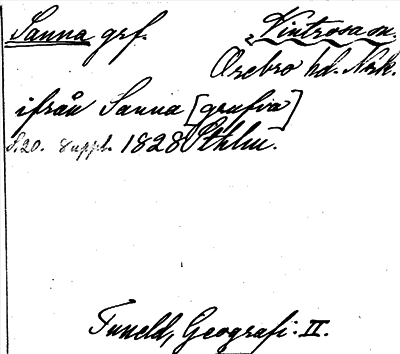 Sanna grf. Vintrosa sn.
Örebro hd. Närk.
ifrån Sanna [grufva]
S.20. Suppl. 1828 Sthlm.
Tuneld, Geografi. II.